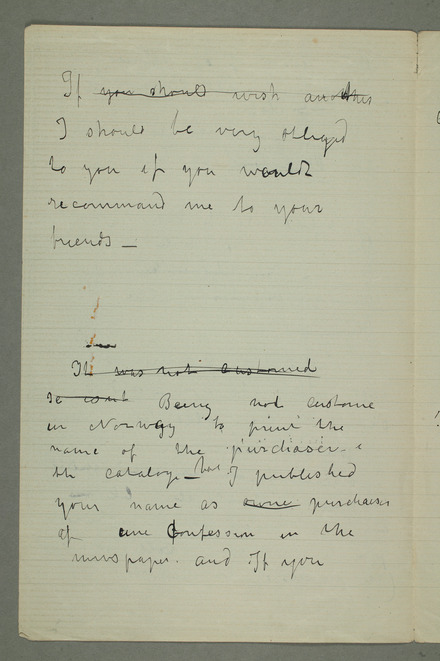 If you should wish another
I should be very obliged
to you if you would
recommand me to your
friends —
It was not customed
Being not custome
in Norway to print the
name of the purchaser
th catalog — but I published
your name as owne purchaser
of une Confession in the
newspaper. and If you